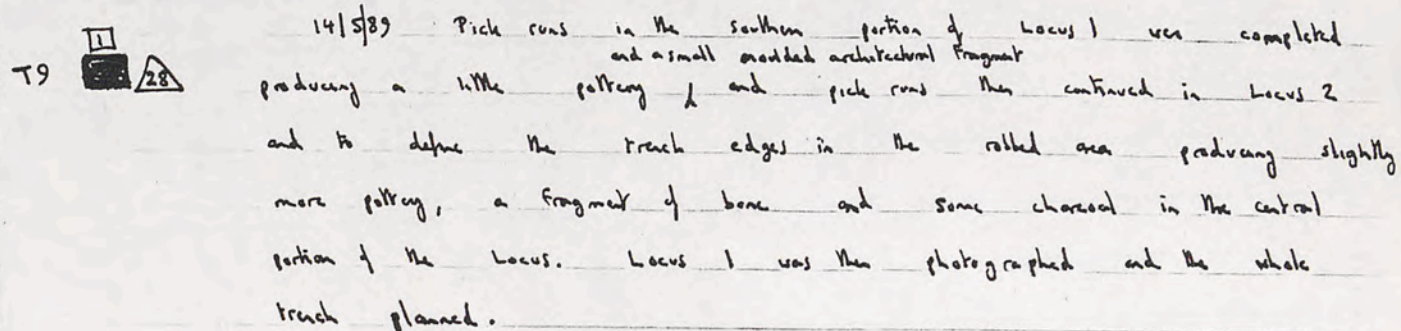 14/5/89 Pick runs in the southern portion of Locus 1 was completed
and a small moulded architectural fragment
T9 1 28 producing a little pottery & and pick runs then continued in Locus 2
and to define the trench edges in the robbed area producing slightly
more pottery, a fragment of bone and some charcoal in the central
portion of the Locus. Locus 1 was then photographed and the whole
trench planned.